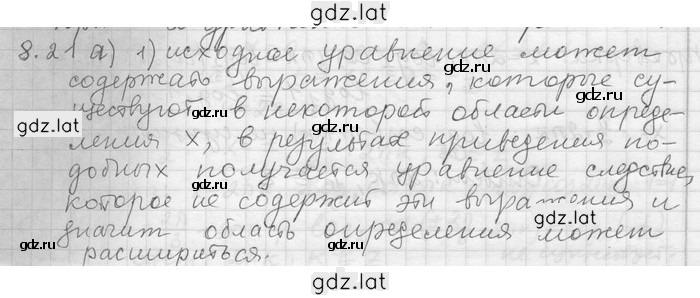 gdz.lat
8.21 а) 1) исходное уравнение может
содержать выражения, которые су-
ществуют в некоторой области опреде-
ления x, в результате приведения по-
добных получается уравнение следствие,
которое не содержит эти выражения и
значит область определения может
расшириться.
gdz.lat
gdz.lat
gdz.lat
gdz.lat
gdz.lat
gdz.lat
gdz.lat
gdz.lat
gdz.lat
gdz.lat
gdz.lat